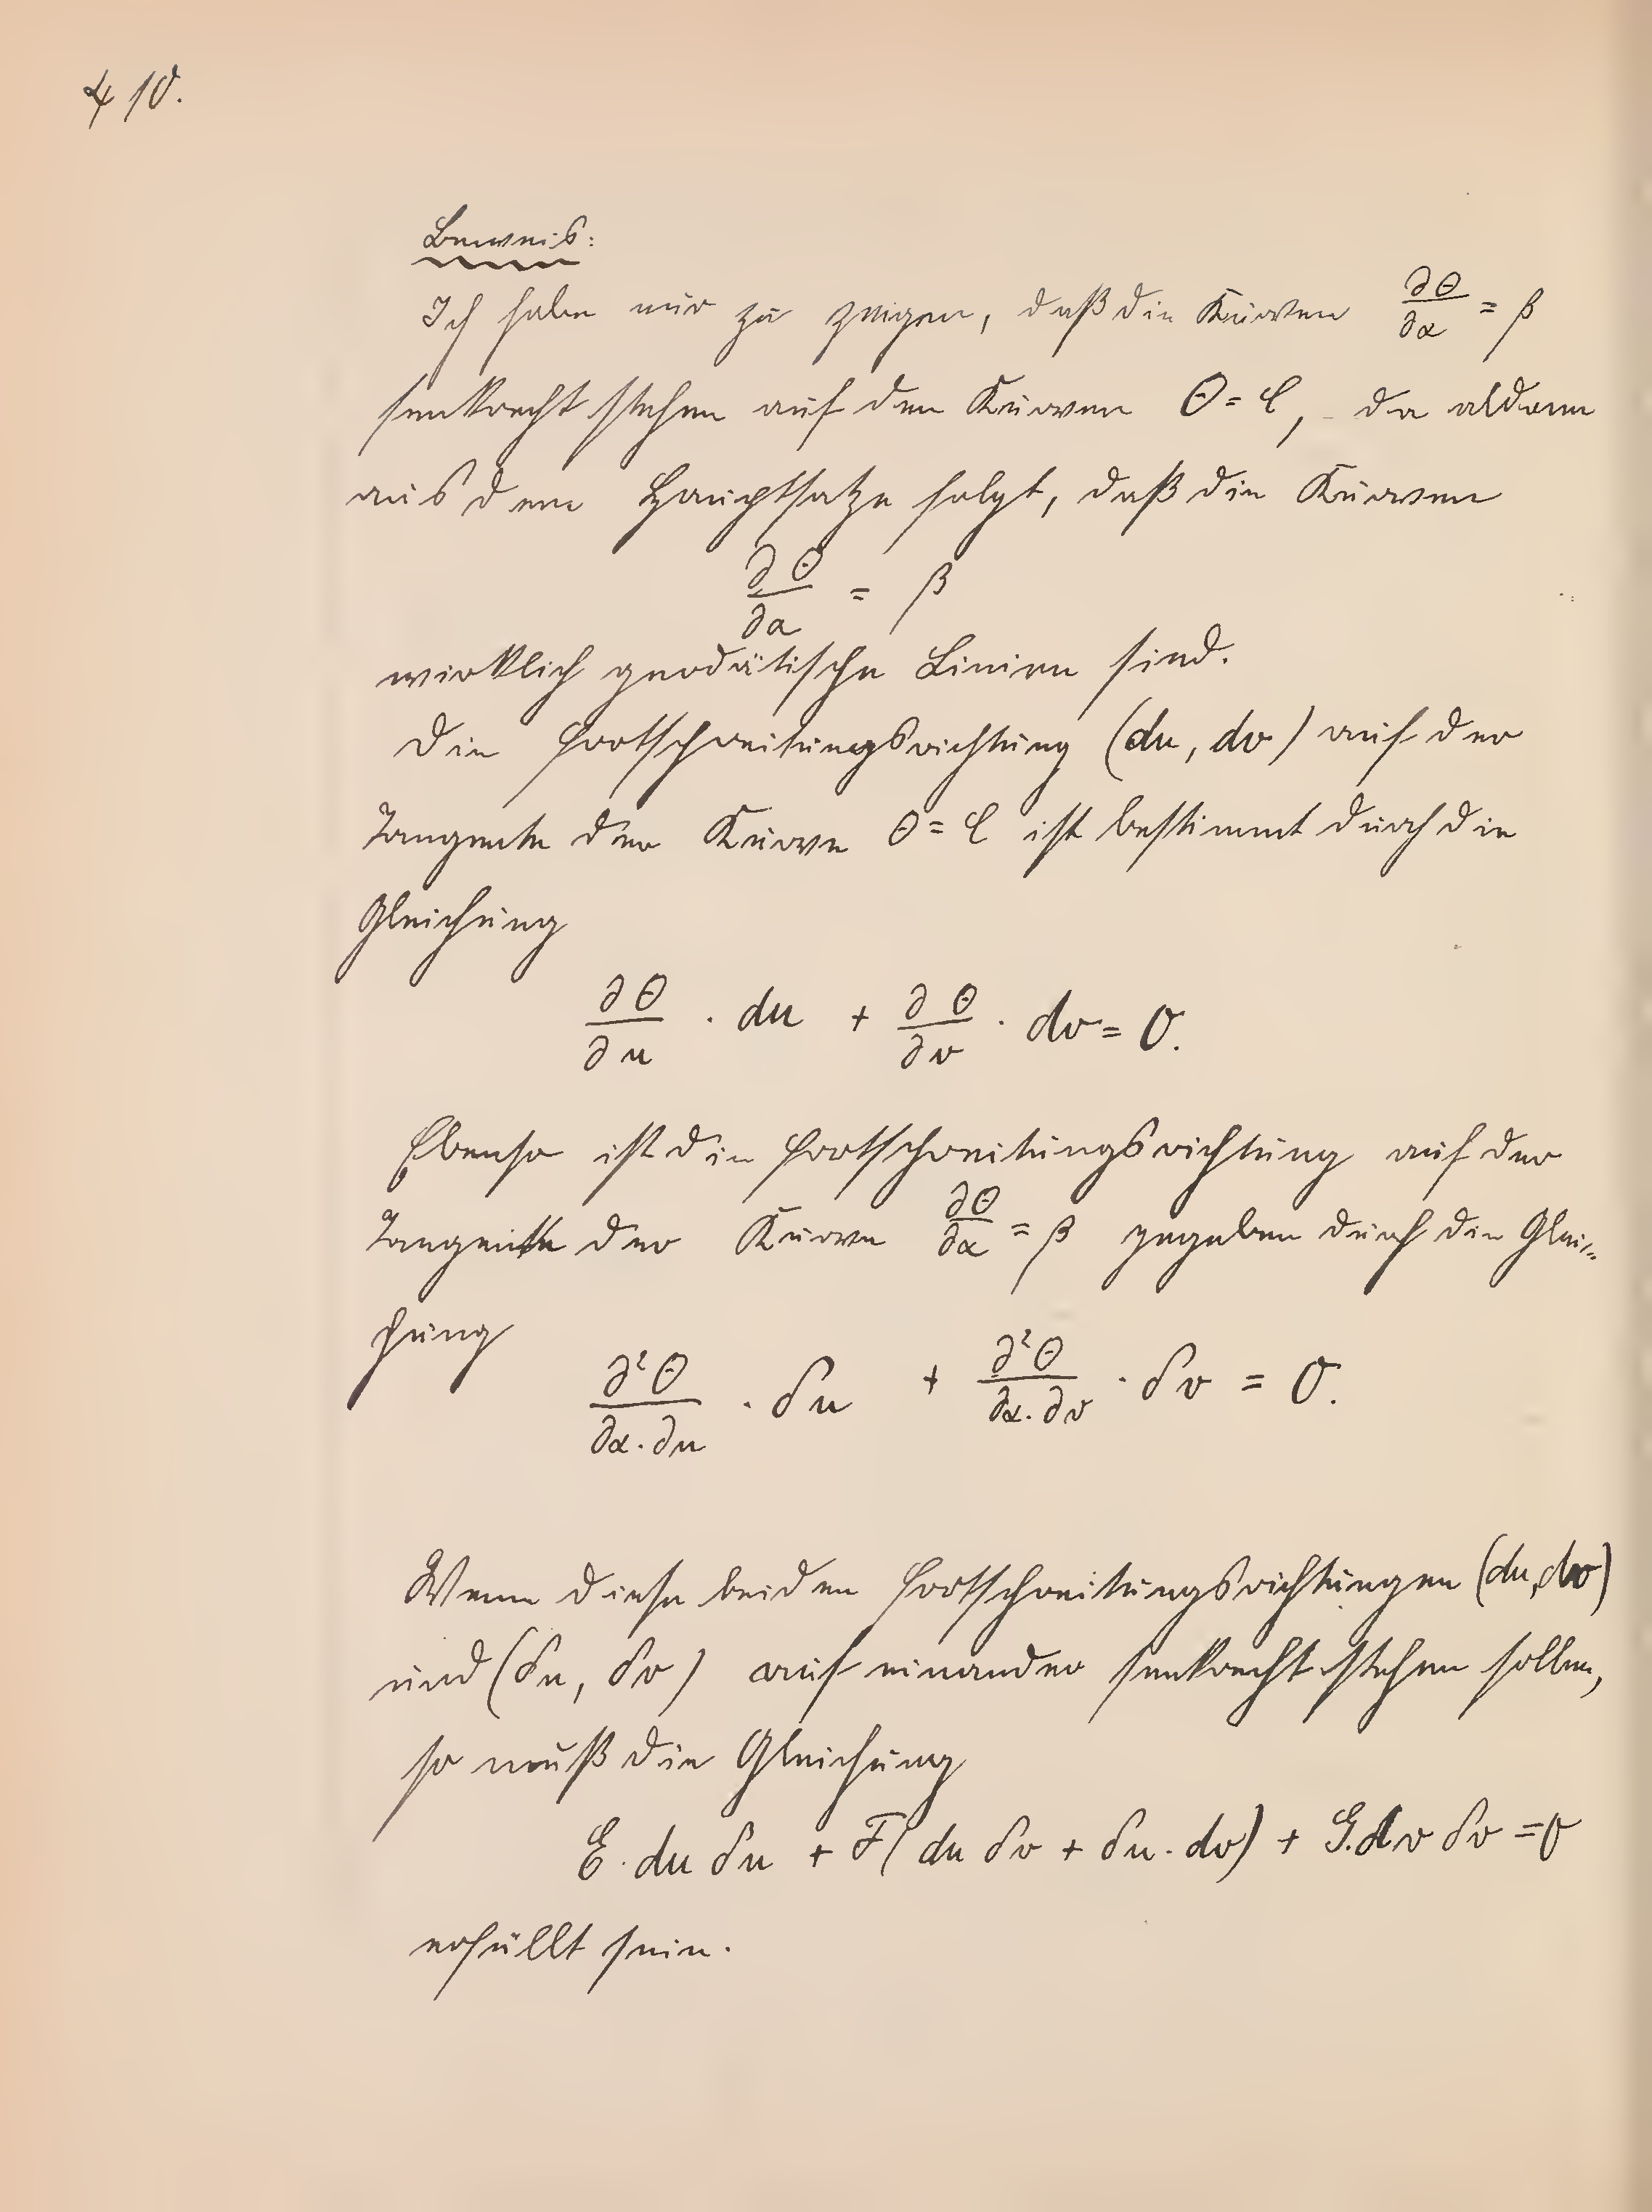 410.
Beweis:
Ich habe nur zu zeigen, daß die Kurven ∂Θ/∂α = β
senkrecht stehen auf den Kurven Θ = C, da aldann
aus dem Hauptsatze folgt, daß die Kurven
∂Θ/∂α = β
wirklich geodätische Linien sind.
Die Fortschreitungsrichtung (du, dv) auf der
Tangente der Kurve Θ = C ist bestimmt durch die
Gleichung
∂Θ/∂u · du + ∂Θ/∂v · dv = 0.
Ebenso ist die Fortschreitungsrichtung auf der
Tangente der Kurve ∂Θ/∂α = β gegeben durch die Glei=
chung
∂²Θ/∂α·∂u · δu + ∂²Θ/∂α·∂v · δv = 0.
Wenn diese beiden Fortschreitungsrichtungen (du, dv)
und (δu, δv) auf einander senkrecht stehen sollen,
so muß die Gleichung
E·du δu + F(du δv + δu·dv) + G.dv δv = 0
erfüllt sein.